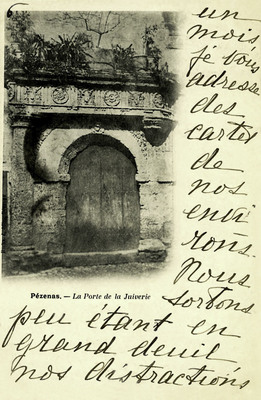 6
un
mois
je vous
adresse
des
cartes
de
nos
envi
rons.
Nous
sortons
peu étant en
grand deuil
nos distractions
Pézenas. — La Porte de la Juiverie